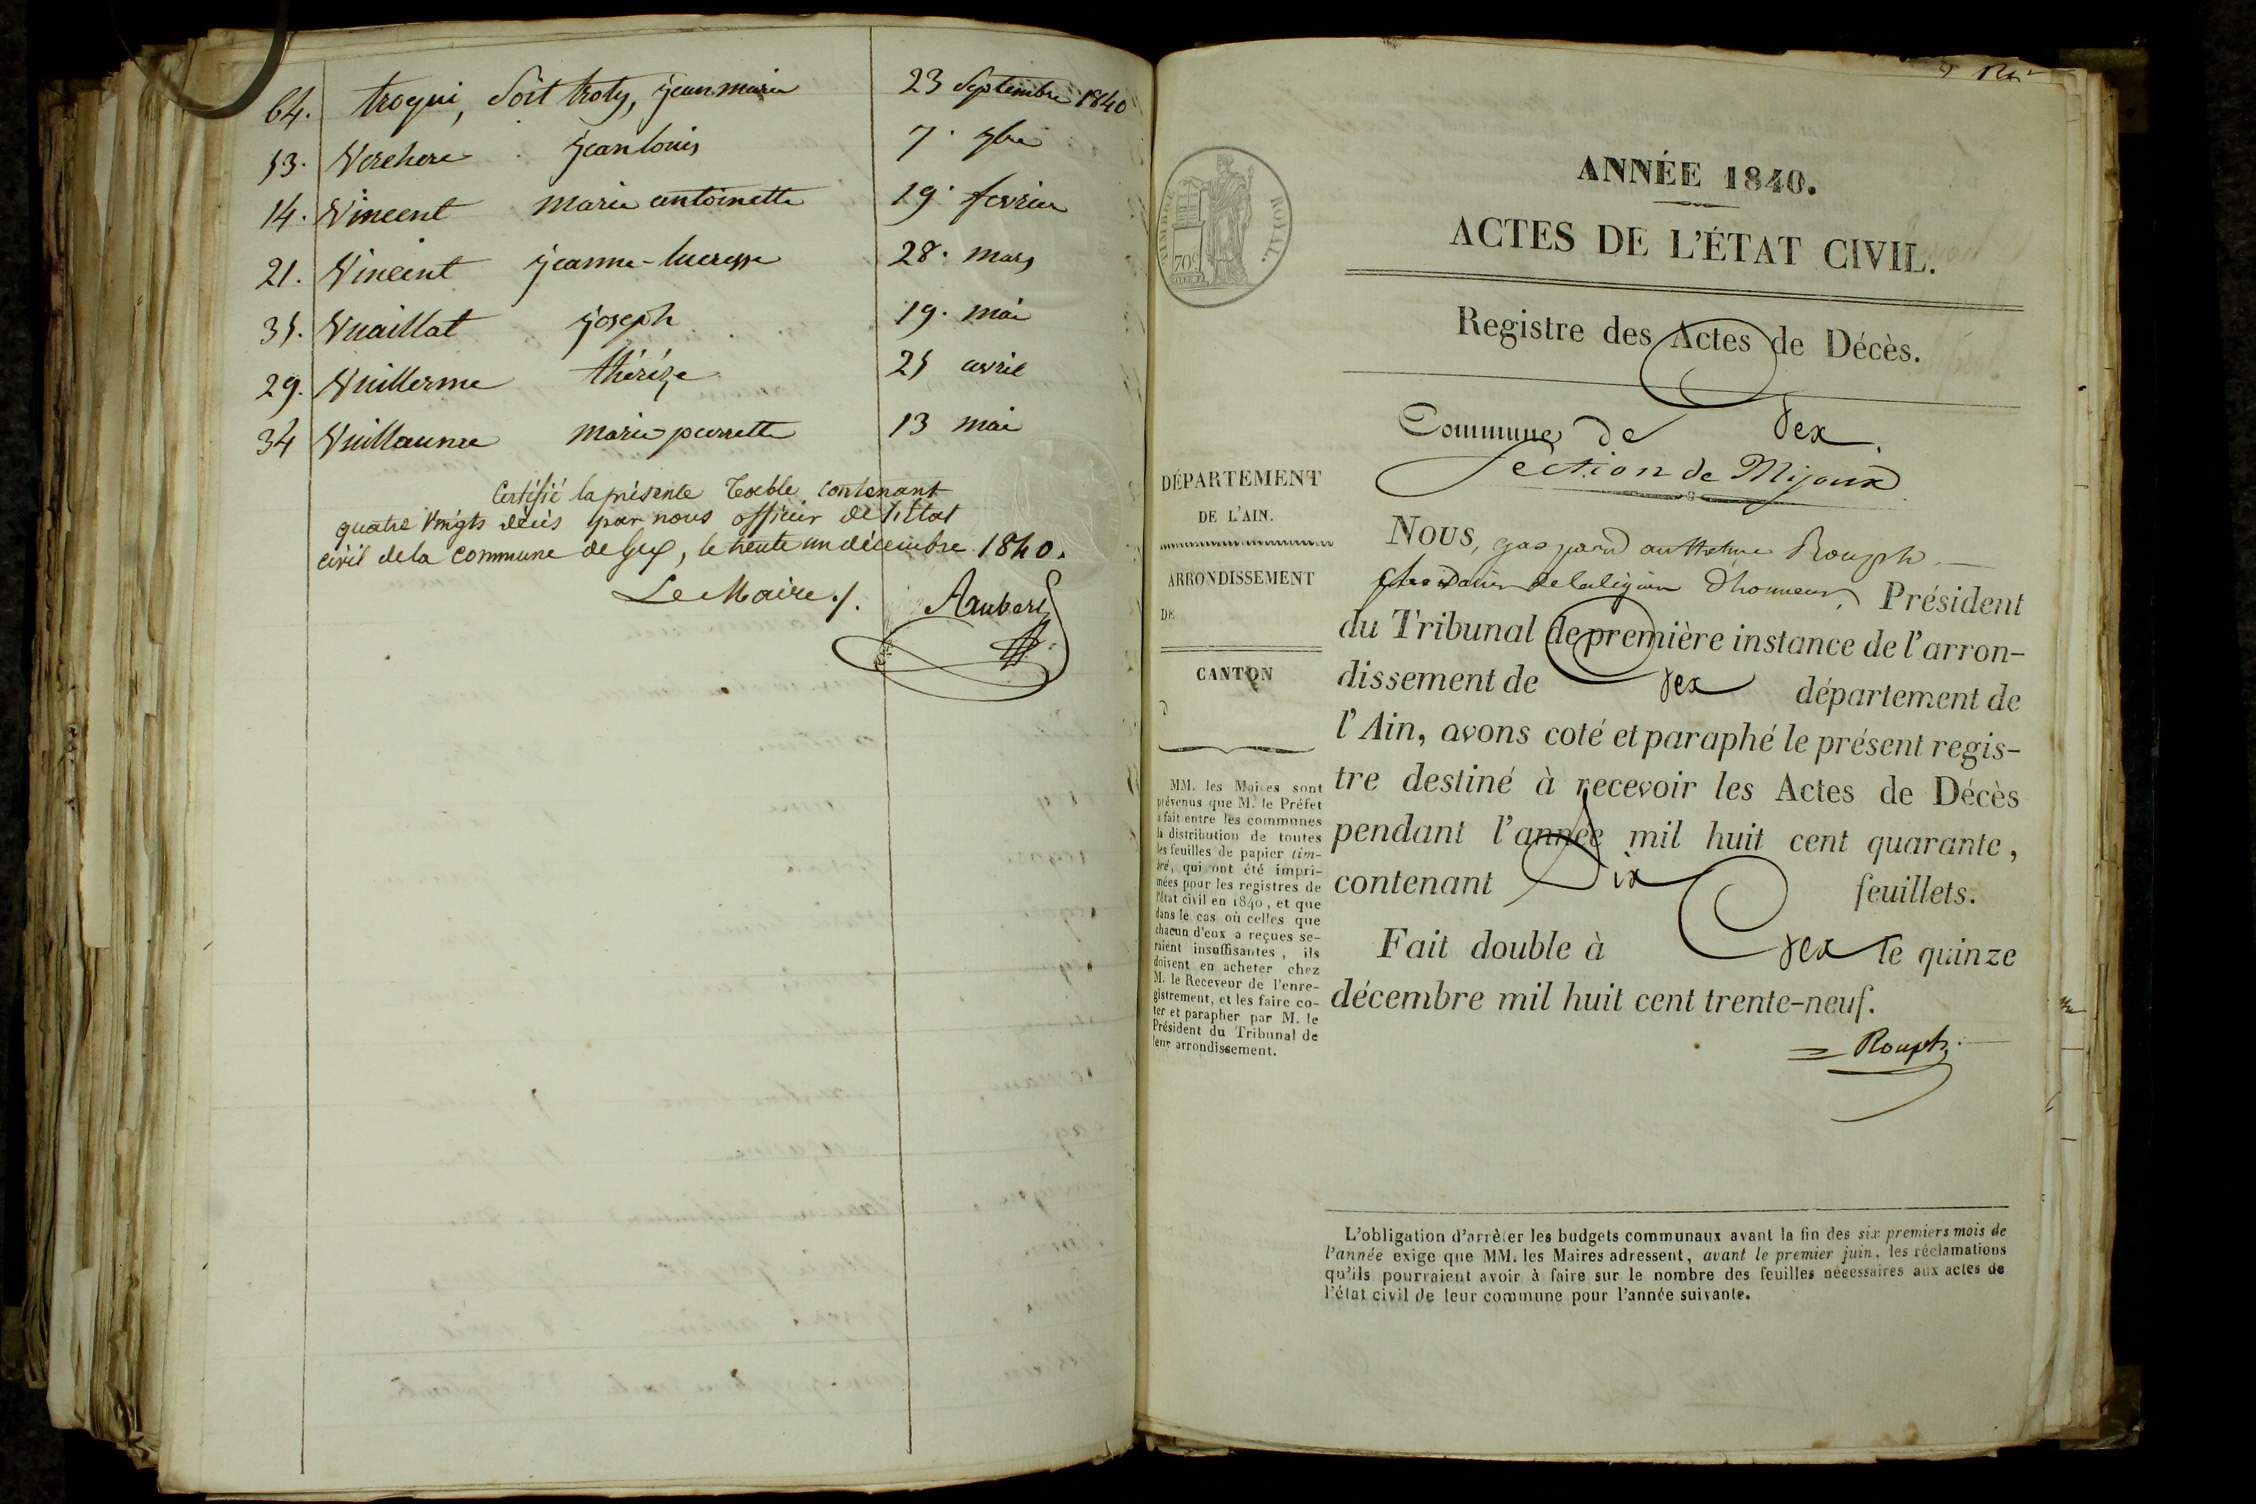 64. troqui, soit troty, jean marie 23 Septembre 1840
53. Verchere jean louis 7. 7bre
14. Vincent marie antoinette 19. fevrier
21. Vincent jeanne-lucresse 28. mars
35. Vuaillat joseph 19. mai
29. Vuillerme thérèze 25 avril
34 Vuillaume marie pierrette 13 mai
Certifié la présente Table contenant
quatre vingts décès par nous officier de l'État
civil de la commune de Gex, le trente un décembre 1840.
Le Maire ./. Aubert
ANNÉE 1840.
ACTES DE L'ÉTAT CIVIL.
Registre des Actes de Décès.
TIMBRE ROYAL.
Commune de Gex.
Section de Mijoux
DÉPARTEMENT
DE L'AIN.
ARRONDISSEMENT
DE
CANTON
D
MM. les Maires sont
prévenus que M. le Préfet
a fait entre les communes
la distribution de toutes
les feuilles de papier tim-
bré, qui ont été impri-
mées pour les registres de
l'état civil en 1840, et que
dans le cas où celles que
chacun d'eux a reçues se-
raient insuffisantes, ils
doivent en acheter chez
M. le Receveur de l'enre-
gistrement, et les faire co-
ter et parapher par M. le
Président du Tribunal de
leur arrondissement.
NOUS, gaspard Rouph
Chevalier de la légion d'honneur, Président
du Tribunal de première instance de l'arron-
dissement de Gex département de
l'Ain, avons coté et paraphé le présent regis-
tre destiné à recevoir les Actes de Décès
pendant l'année mil huit cent quarante,
contenant Six feuillets.
Fait double à Gex le quinze
décembre mil huit cent trente-neuf.
Rouph
L'obligation d'arrêter les budgets communaux avant la fin des six premiers mois de
l'année exige que MM. les Maires adressent, avant le premier juin, les réclamations
qu'ils pourraient avoir à faire sur le nombre des feuilles nécessaires aux actes de
l'état civil de leur commune pour l'année suivante.